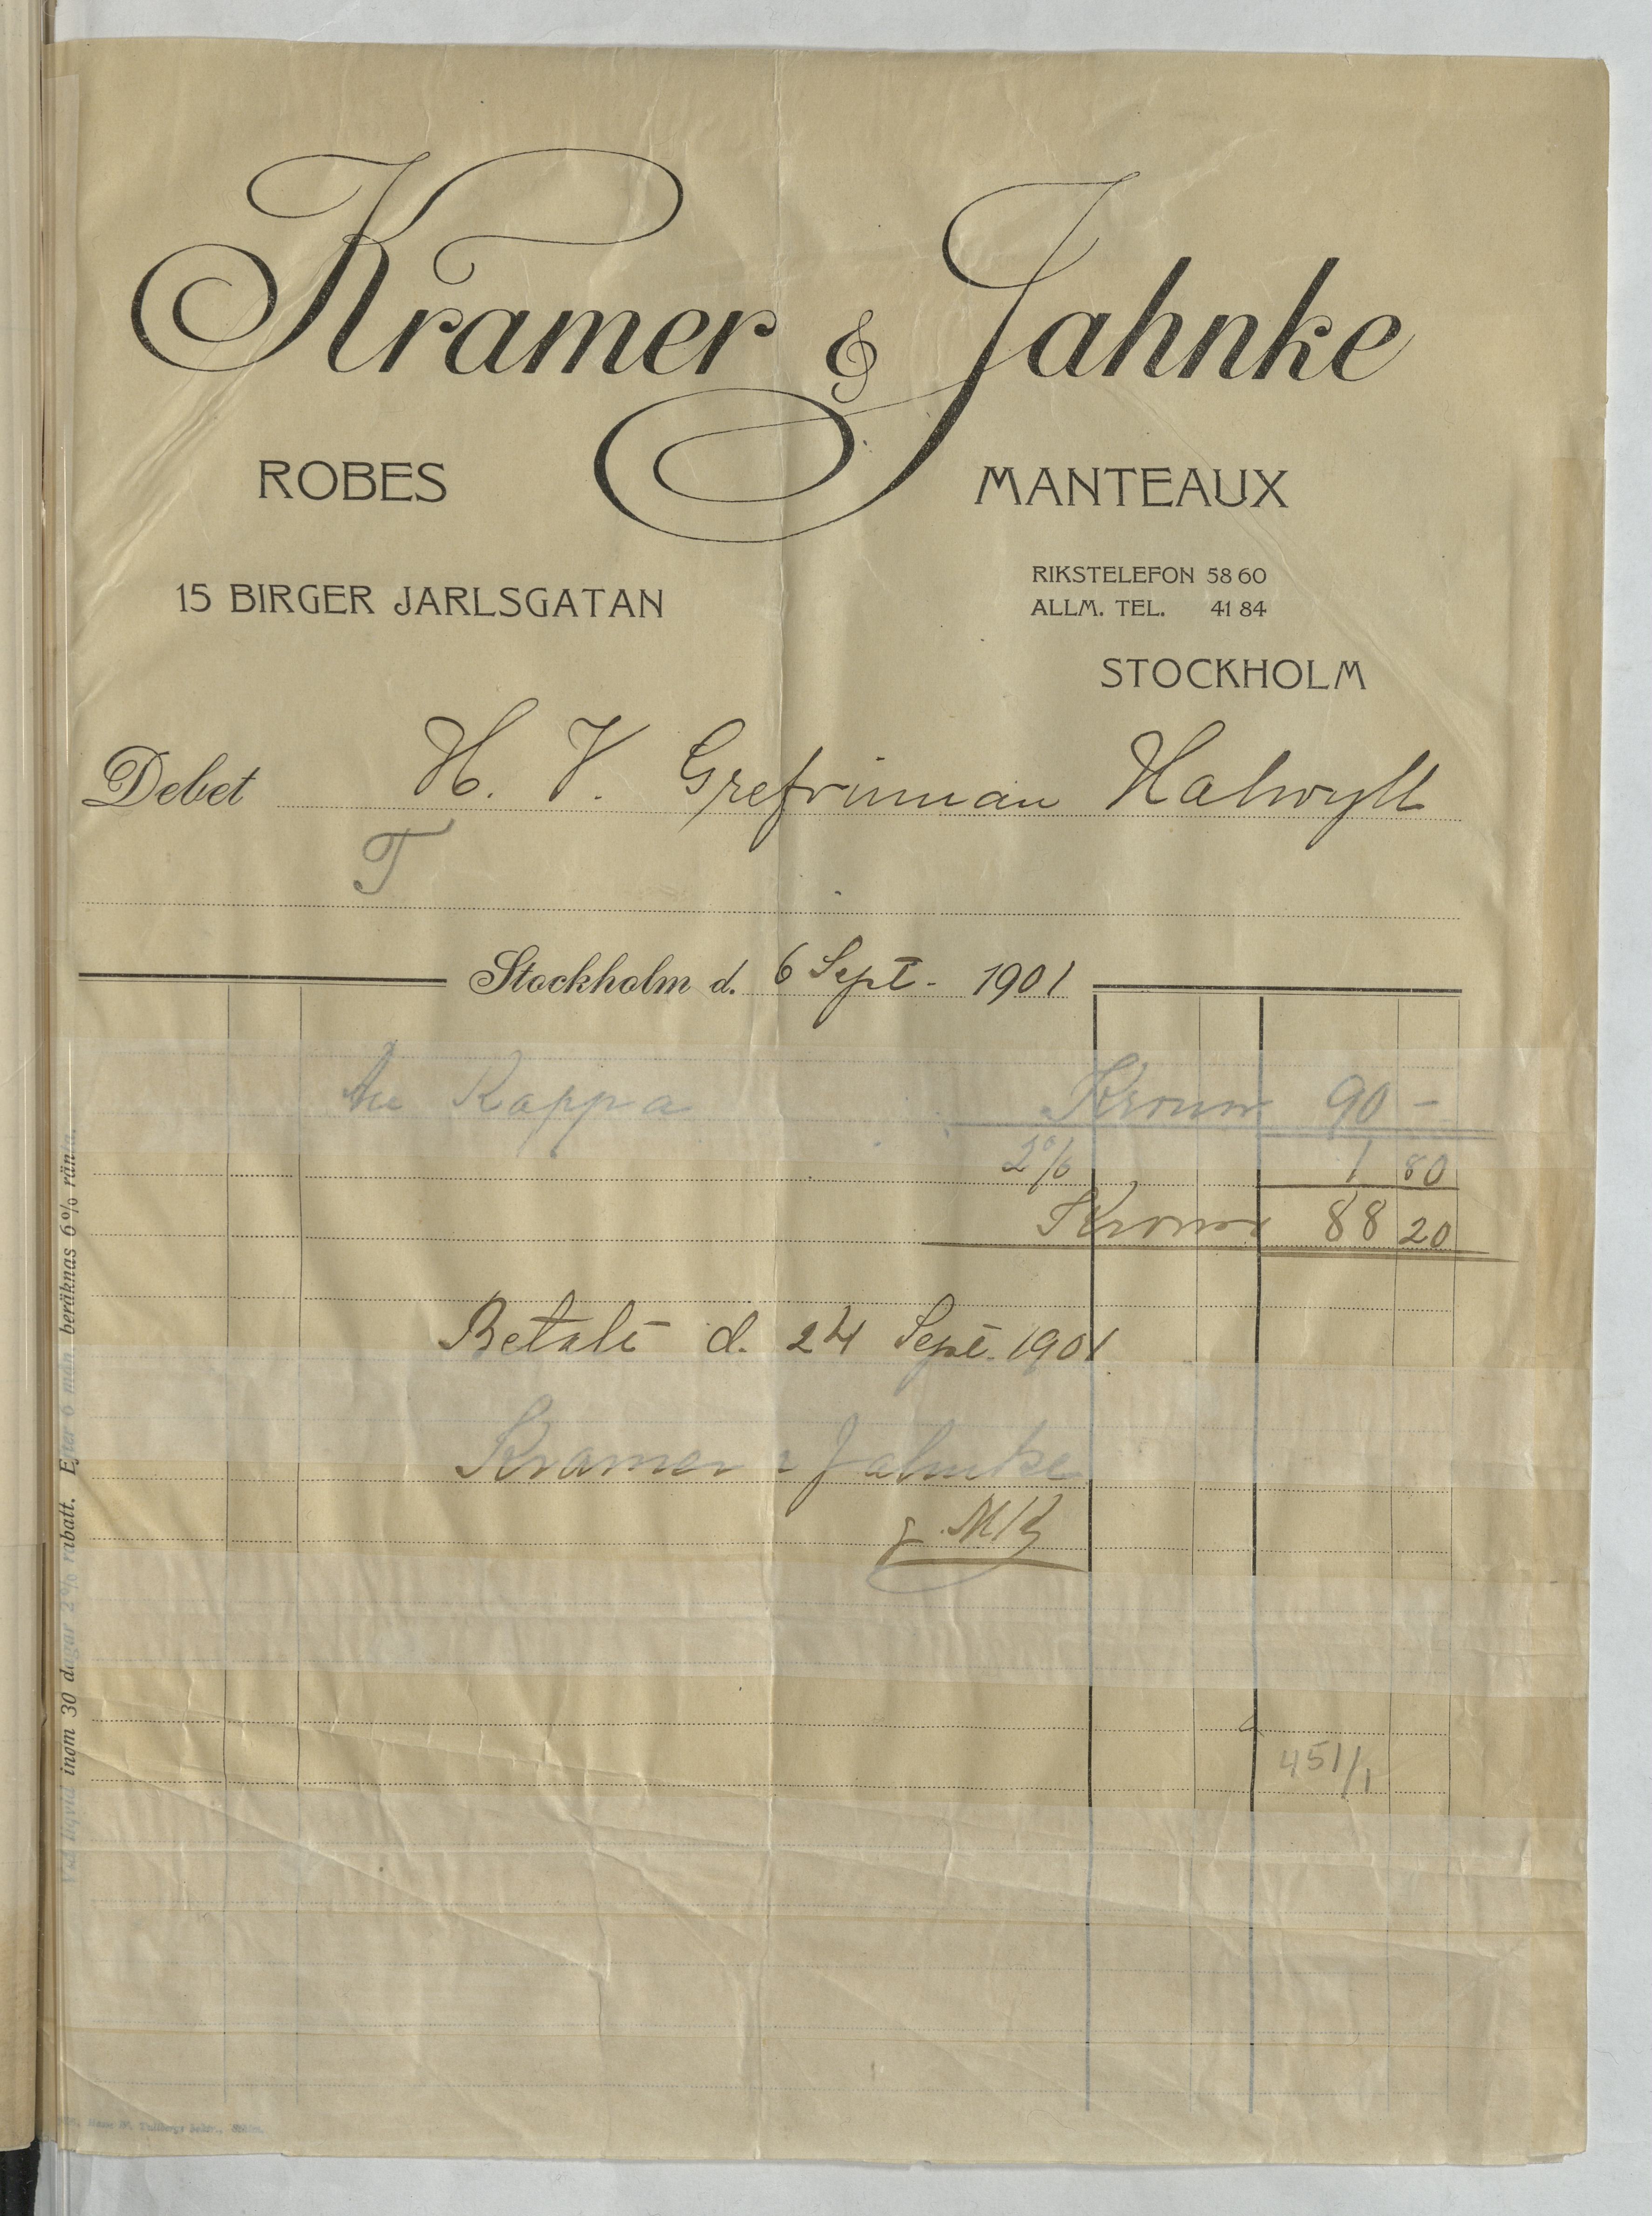 Kramer & Jahnke
ROBES MANTEAUX
15 BIRGER JARLSGATAN
RIKSTELEFON 58 60
ALLM. TEL. 41 84
STOCKHOLM
Debet H. V. Grefvinnan Halwyll
T
Stockholm d. 6 Sept. 1901
Kappa Kronor 90 -
2% 1 80
Kronor 88 20
Betalt d. 24 Sept. 1901
Kramer & Jahnke
451/1
Vid liqvid inom 30 dagar 2% rabatt. Efter 6 mån. beräknas 6% ränta.